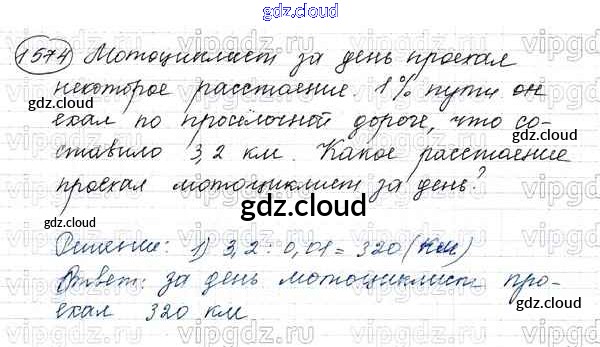 gdz.cloud
1574 Мотоциклист за день проехал
некоторое расстояние. 1% пути он
gdz.cloud
ехал по просёлочной дороге, что со-
ставило 3,2 км. Какое расстояние
gdz.cloud
проехал мотоциклист за день?
gdz.cloud
gdz.cloud
Решение: 1) 3,2 : 0,01 = 320 (км)
Ответ: за день мотоциклист про-
ехал 320 км
gdz.cloud
gdz.cloud